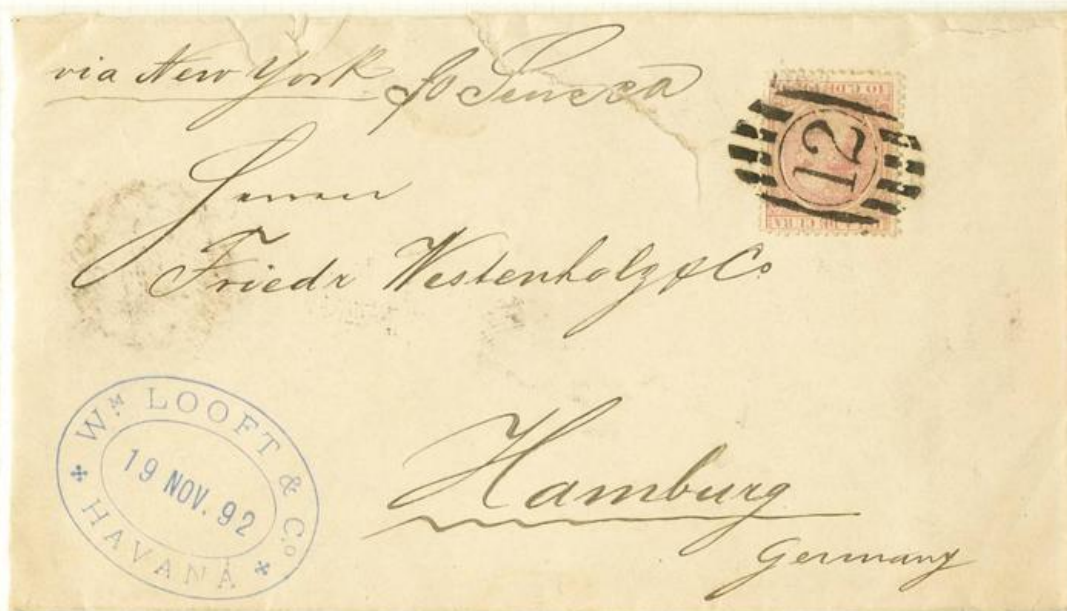 via New York p Seneca
12
Herren
Friedr Westenholz & Co
Hamburg
Germany
Wᴹ LOOFT & Cᵒ
19 NOV. 92
HAVANA